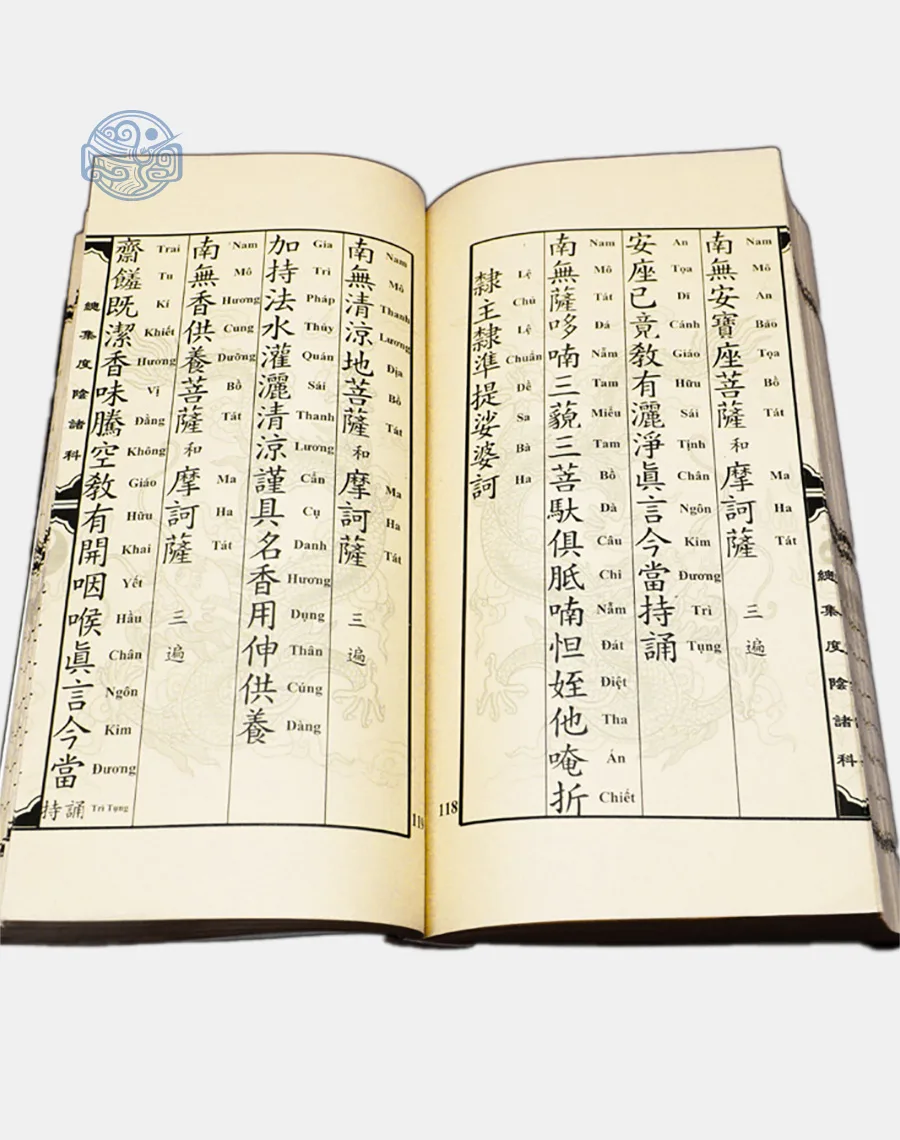 總集度陰諸科
南無安寶座菩薩和摩訶薩 三遍
Nam Mô An Bảo Tọa Bồ Tát Ma Ha Tát
安座已竟教有灑淨眞言今當持誦
An Tọa Dĩ Cánh Giáo Hữu Sái Tịnh Chân Ngôn Kim Đương Trì Tụng
南無薩哆喃三藐三菩馱俱胝喃怛姪他唵折
Nam Mô Tát Đá Nẫm Tam Miểu Tam Bồ Đà Câu Chi Nẫm Đát Điệt Tha Án Chiết
隸主隸準提娑婆訶
Lệ Chủ Lệ Chuẩn Đề Sa Bà Ha
118
南無清涼地菩薩和摩訶薩 三遍
Nam Mô Thanh Lương Địa Bồ Tát Ma Ha Tát
加持法水灌灑清涼謹具名香用伸供養
Gia Trì Pháp Thủy Quán Sái Thanh Lương Cẩn Cụ Danh Hương Dụng Thân Cúng Dàng
南無香供養菩薩和摩訶薩 三遍
Nam Mô Hương Cung Dưỡng Bồ Tát Ma Ha Tát
齋饈既潔香味騰空教有開咽喉眞言今當持誦
Trai Tu Kí Khiết Hương Vị Đằng Không Giáo Hữu Khai Yết Hầu Chân Ngôn Kim Đương Trì Tụng
總集度陰諸科
119